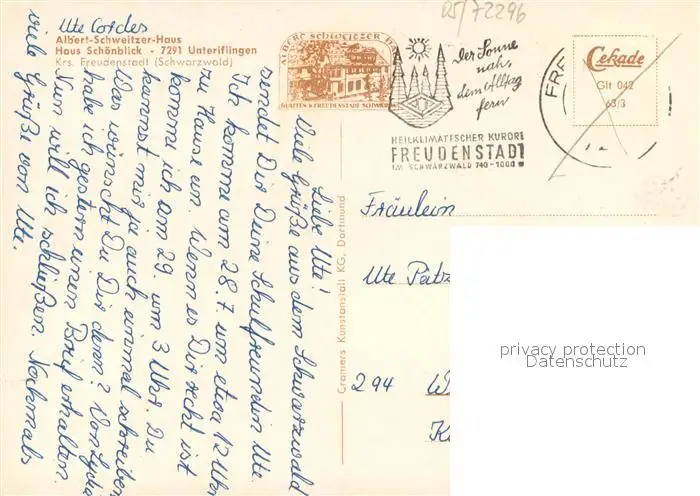 05/72296
Ute Cordes
Albert-Schweitzer-Haus
Haus Schönblick - 7291 Unteriflingen
Krs. Freudenstadt (Schwarzwald)
ALBERT SCHWEITZER HAUS
GLATTEN b. FREUDENSTADT SCHWARZW.
Der Sonne
nah,
dem Alltag
fern
HEILKLIMATISCHER KURORT
FREUDENSTADT
IM SCHWARZWALD 740-1000 m
FRE
Cekade
Glt 042
63/3
Liebe Ute!
Viele Grüße aus dem Schwarzwald
sendet Dir Deine Schulfreundin Ute.
Ich komme am 28.7. um etwa 12 Uhr
zu Hause an. Wenn es Dir recht ist
komme ich am 29. um 3 Uhr. Du
kannst mir ja auch einmal schreiben
Was wünscht Du Dir denn? Von Lydia
habe ich gestern einen Brief erhalten.
Nun will ich schließen. Nochmals
viele Grüße von Ute.
Cramers Kunstanstalt KG, Dortmund
Fräulein
Ute Pätz
294
privacy protection
Datenschutz